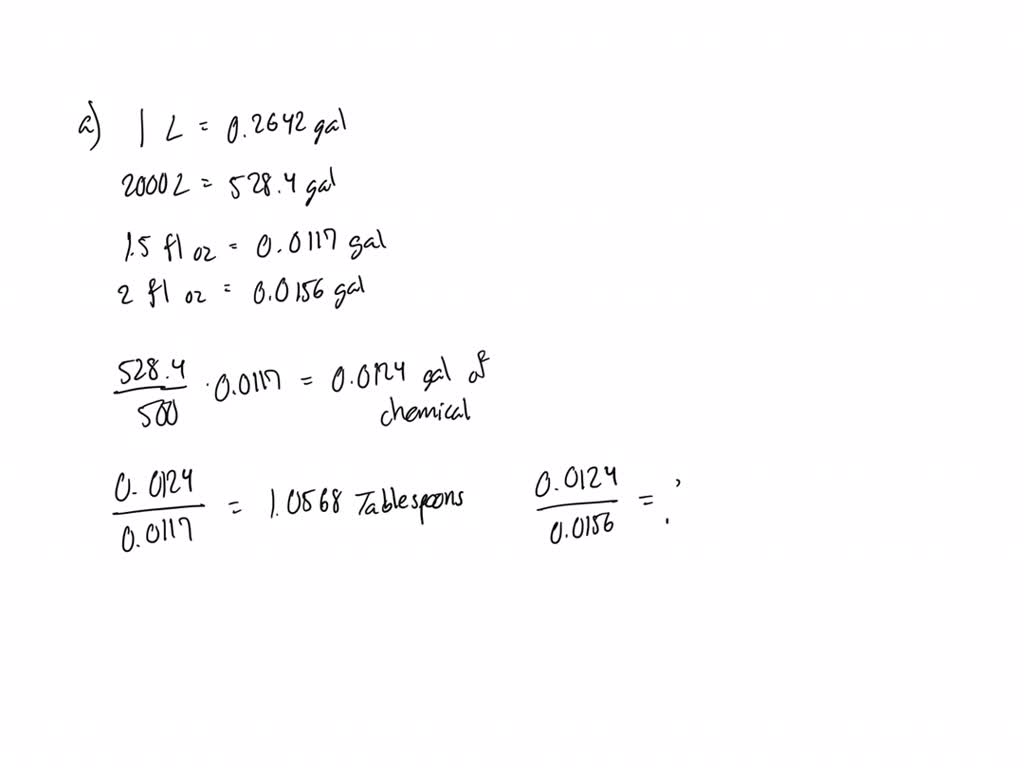 a) 1 L = 0.2642 gal
2000 L = 528.4 gal
1.5 fl oz = 0.0117 gal
2 fl oz = 0.0156 gal
528.4 / 500 · 0.0117 = 0.0124 gal of
chemical
0.0124 / 0.0117 = 1.0568 Tablespoons 0.0124 / 0.0156 = ?